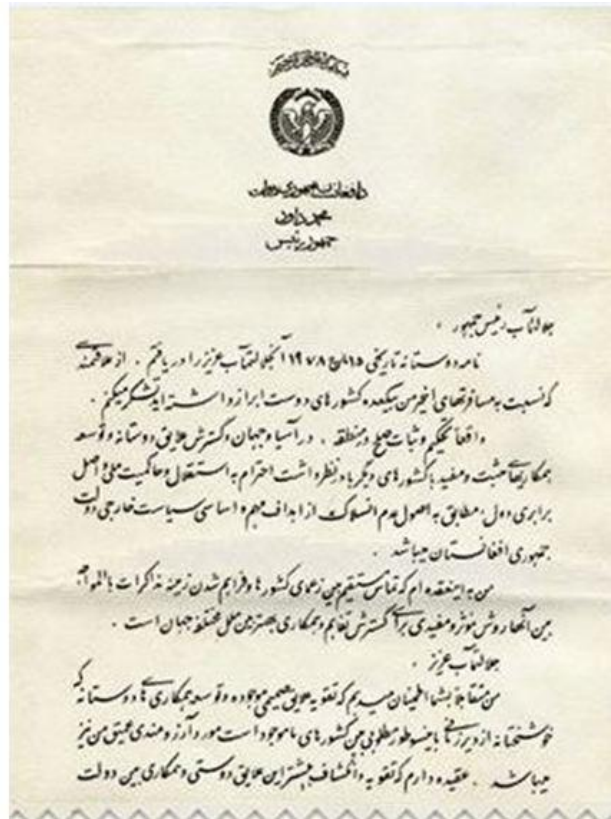 بسم الله الرحمن الرحیم
د افغانستان جمهوری دولت
محمد داود
جمهور رئیس
جلالتمآب رئیس جمهور ،
نامه دوستانه تاریخی ۱۵ مارچ ۱۹۷۸ آنجلالتمآب عزیز را دریافتم . از علاقمندی
که نسبت به مسافرتهای اخیر من به یکعده کشور های دوست ابراز داشته اید تشکر میکنم .
واقعاً تحکیم و ثبات صلح در منطقه ، در آسیا و جهان و گسترش علایق دوستانه و توسعه
همکاریهای مثبت و مفید با کشور های دیگر با در نظر داشت احترام به استقلال و حاکمیت ملی و اصل
برابری دول مطابق به اصول عدم انسلاک از اهداف مهم و اساسی سیاست خارجی دولت
جمهوری افغانستان میباشد .
من به اینعقیده ام که تماس مستقیم بین زعمای کشور ها و فراهم شدن زمینه مذاکرات بالمواجه
بین آنها روش مؤثر و مفیدی برای گسترش تفاهم و همکاری بهتر بین ملل مختلف جهان است .
جلالتمآب عزیز ،
من متقابلاً بشما اطمینان میدهم که تقویه علایق صمیمی موجوده و توسعه همکاری های دوستانه که
خوشبختانه از دیر زمانی باینسو بطور مطلوبی بین کشور های ما موجود است مورد آرزومندی عمیق من نیز
میباشد . عقیده دارم که تقویه و انکشاف بیشتر این علایق دوستی و همکاری بین دولت